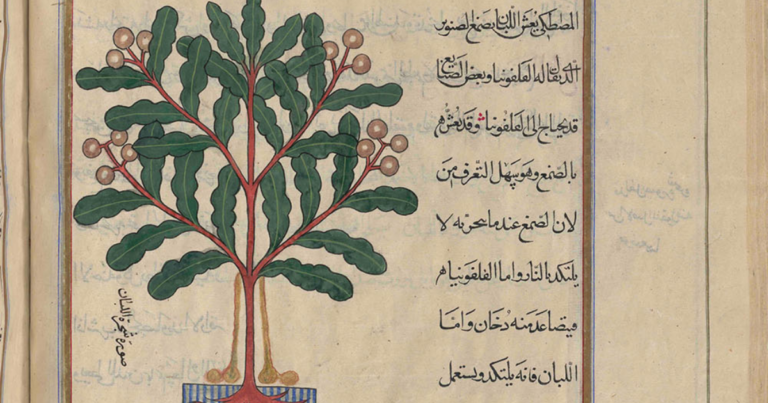 المصطكي يغش اللبان بصمغ الصنوبر
الذي يقال له القلفونيا وبعض الصنايع
قد يحتاج الى القلفونيا وقد يغش هم
بالصمغ وهو سهل التعرف من
لان الصمغ عند ما يبخر به لا
يلتكد بالنار واما القلفونيا هم
فيصاعد منه دخان واما
اللبان فانه يلتكد ويستعمل
صورة شجرة اللبان